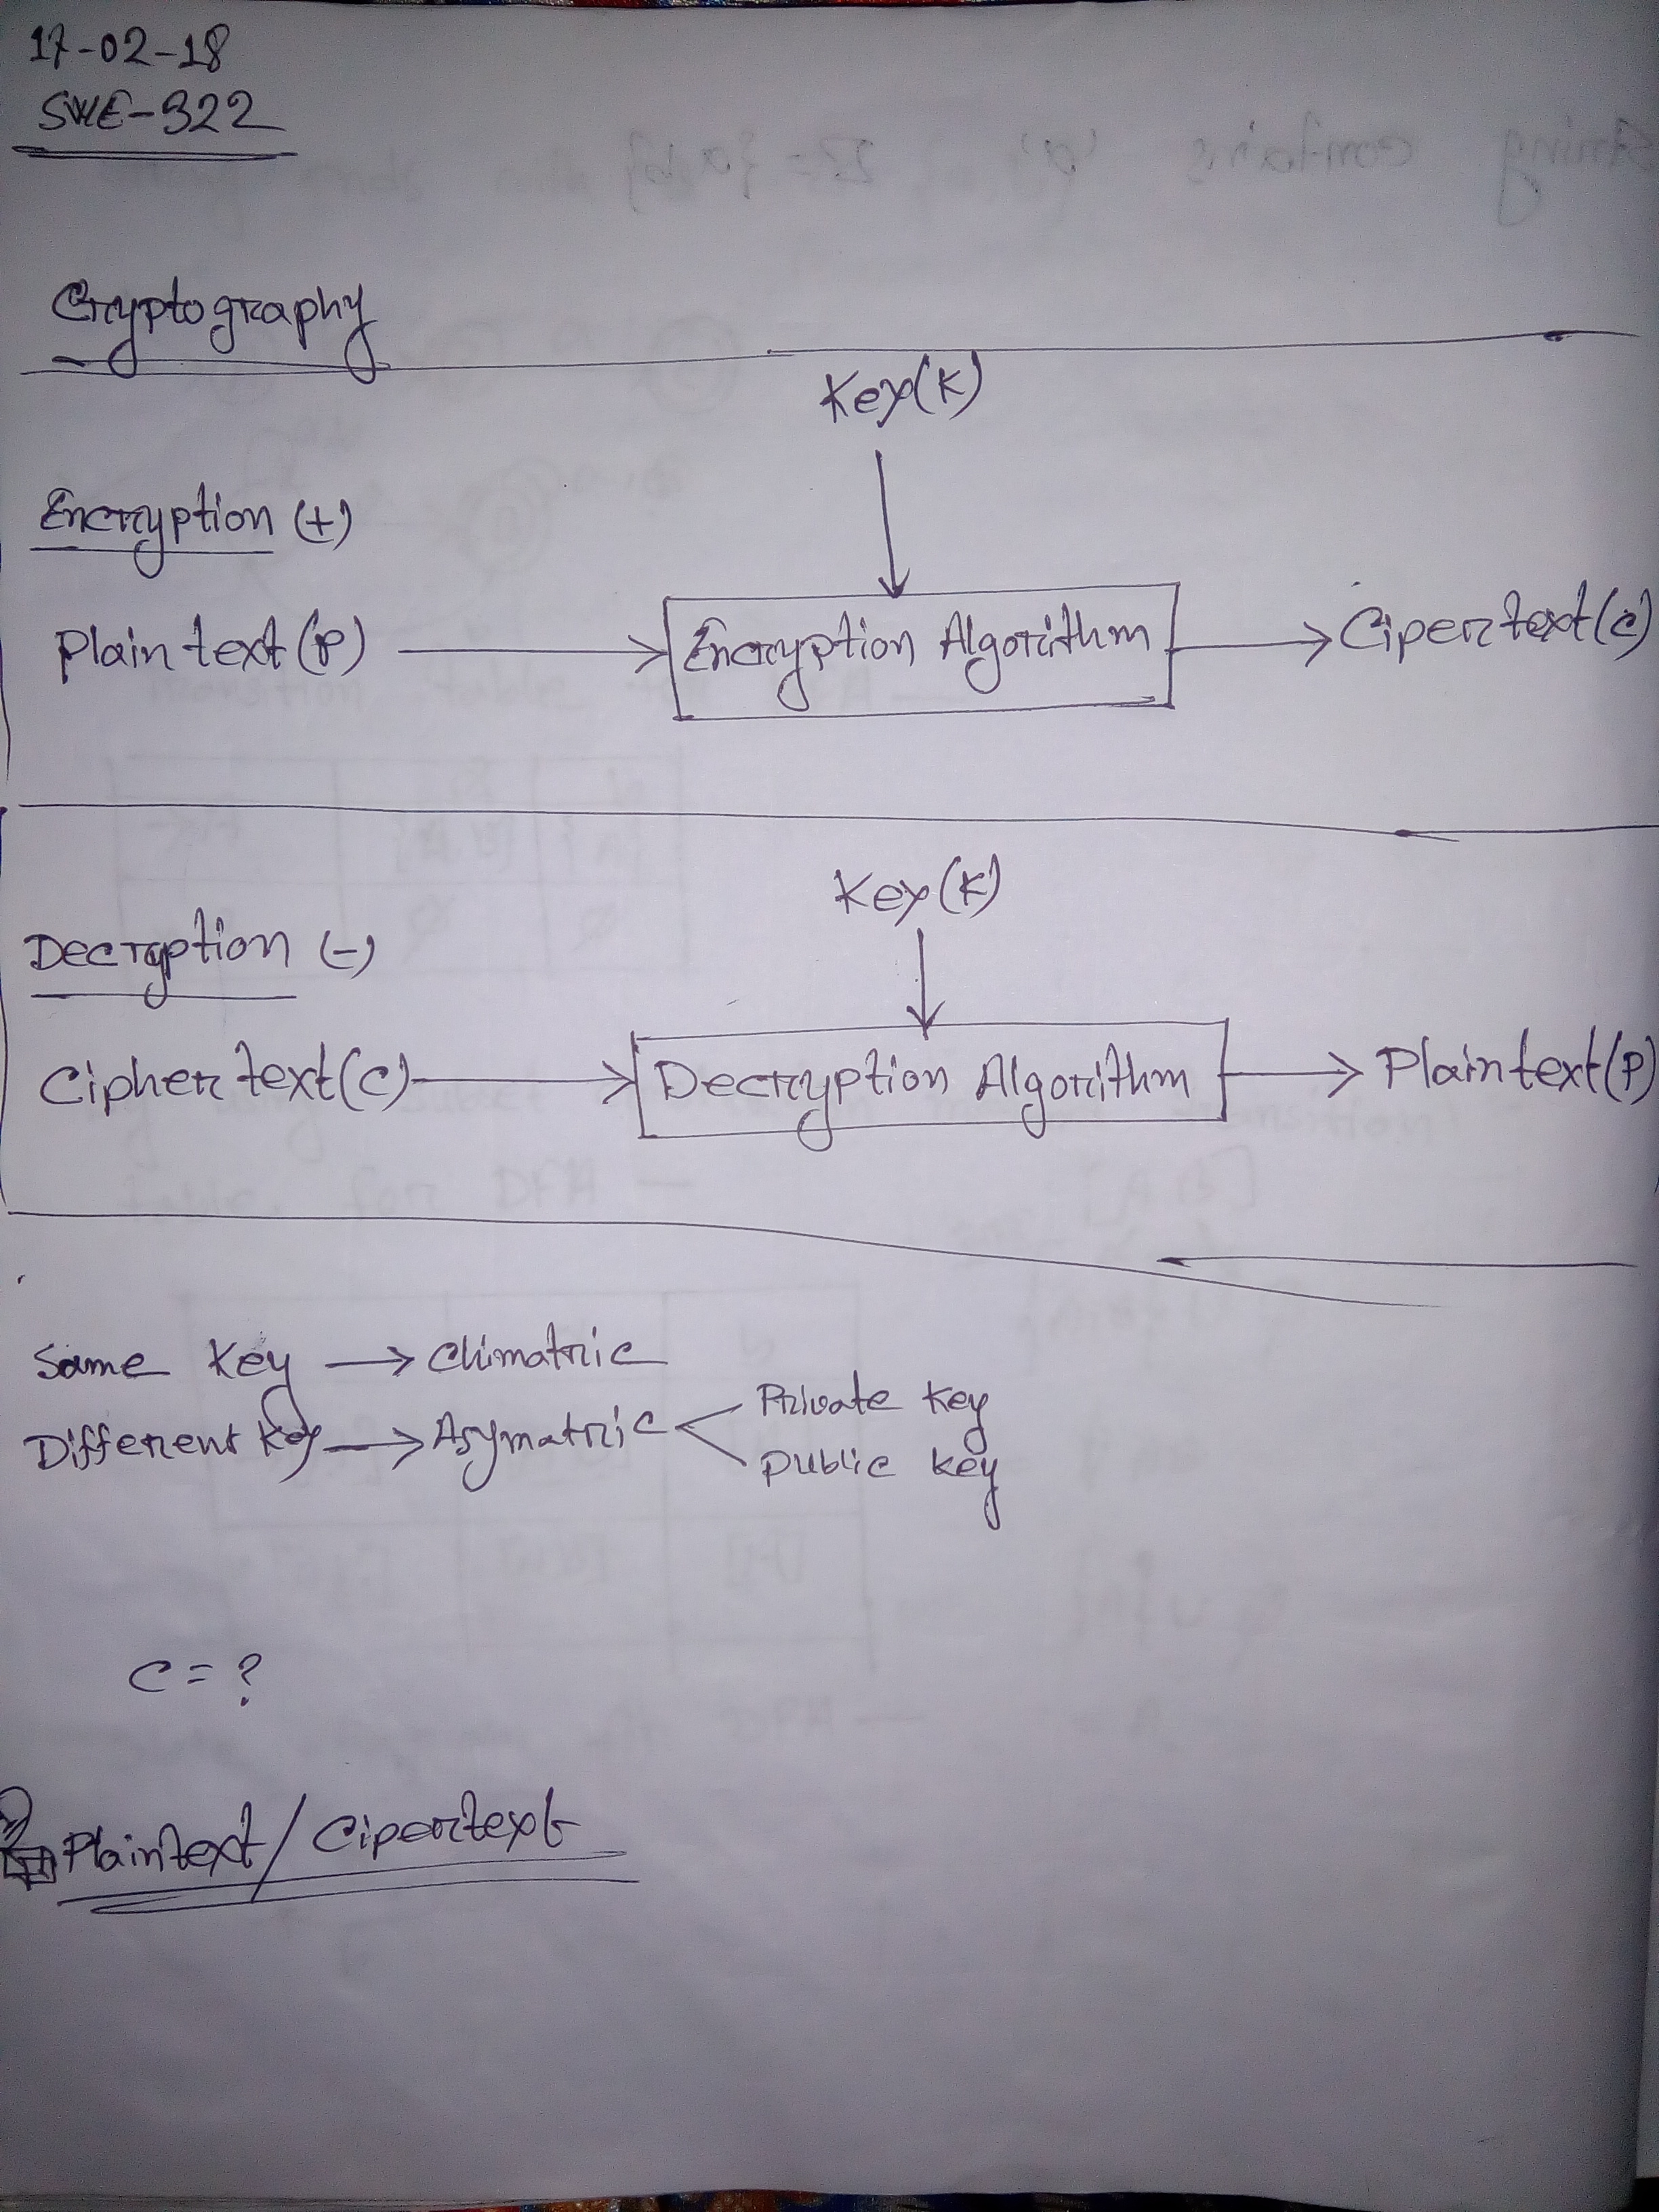 17-02-18
SWE-322
Cryptography
Key(K)
Encryption (+)
Plain text (P) → Encryption Algorithm → Cipertext(c)
Key(K)
Decryption (-)
Ciphertext(c) → Decryption Algorithm → Plaintext(P)
Same Key → Chimatric
Different key → Asymatric < Private key
Public key
C = ?
Plaintext / Cipertext